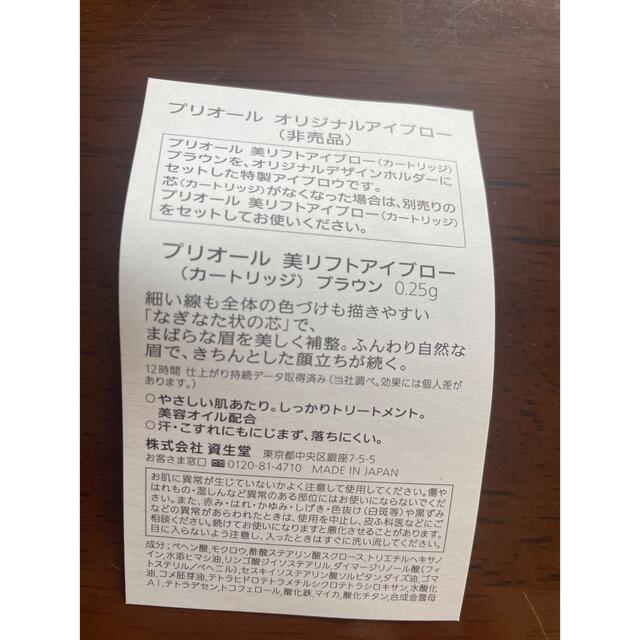 プリオール オリジナルアイブロー
（非売品）
プリオール 美リフトアイブロー（カートリッジ）
ブラウンを、オリジナルデザインホルダーに
セットした特製アイブロウです。
芯（カートリッジ）がなくなった場合は、別売りの
プリオール 美リフトアイブロー（カートリッジ）
をセットしてお使いください。
プリオール 美リフトアイブロー
（カートリッジ） ブラウン 0.25g
細い線も全体の色づけも描きやすい
「なぎなた状の芯」で、
まばらな眉を美しく補整。ふんわり自然な
眉で、きちんとした顔立ちが続く。
12時間 仕上がり持続データ取得済み（当社調べ。効果には個人差が
あります。）
○やさしい肌あたり。しっかりトリートメント。
美容オイル配合
○汗・こすれにもにじまず、落ちにくい。
株式会社 資生堂 東京都中央区銀座7-5-5
お客さま窓口 0120-81-4710 MADE IN JAPAN
お肌に異常が生じていないかよく注意して使用してください。傷や
はれもの・湿しんなど異常のある部位にはお使いにならないでくだ
さい。また、赤み・はれ・かゆみ・しげき・色抜け（白斑等）や黒ずみ
などの異常があらわれたときは、使用を中止し、皮ふ科医などにご
相談ください。続けてお使いになりますと悪化させることがあります。
目に入らないよう注意し、入ったときはすぐに洗い流してください。
成分：ベヘン酸,モクロウ,酢酸ステアリン酸スクロース,トリエチルヘキサノ
イン,水添ヒマシ油,リンゴ酸ジイソステアリル,ダイマージリノール酸(フィ
トステリル/ベヘニル),セスキイソステアリン酸ソルビタン,ダイズ油,ゴマ
油,コメ胚芽油,テトラヒドロテトラメチルシクロテトラシロキサン,水酸化
Al,テトラデセン,トコフェロール,酸化鉄,マイカ,酸化チタン,合成金雲母